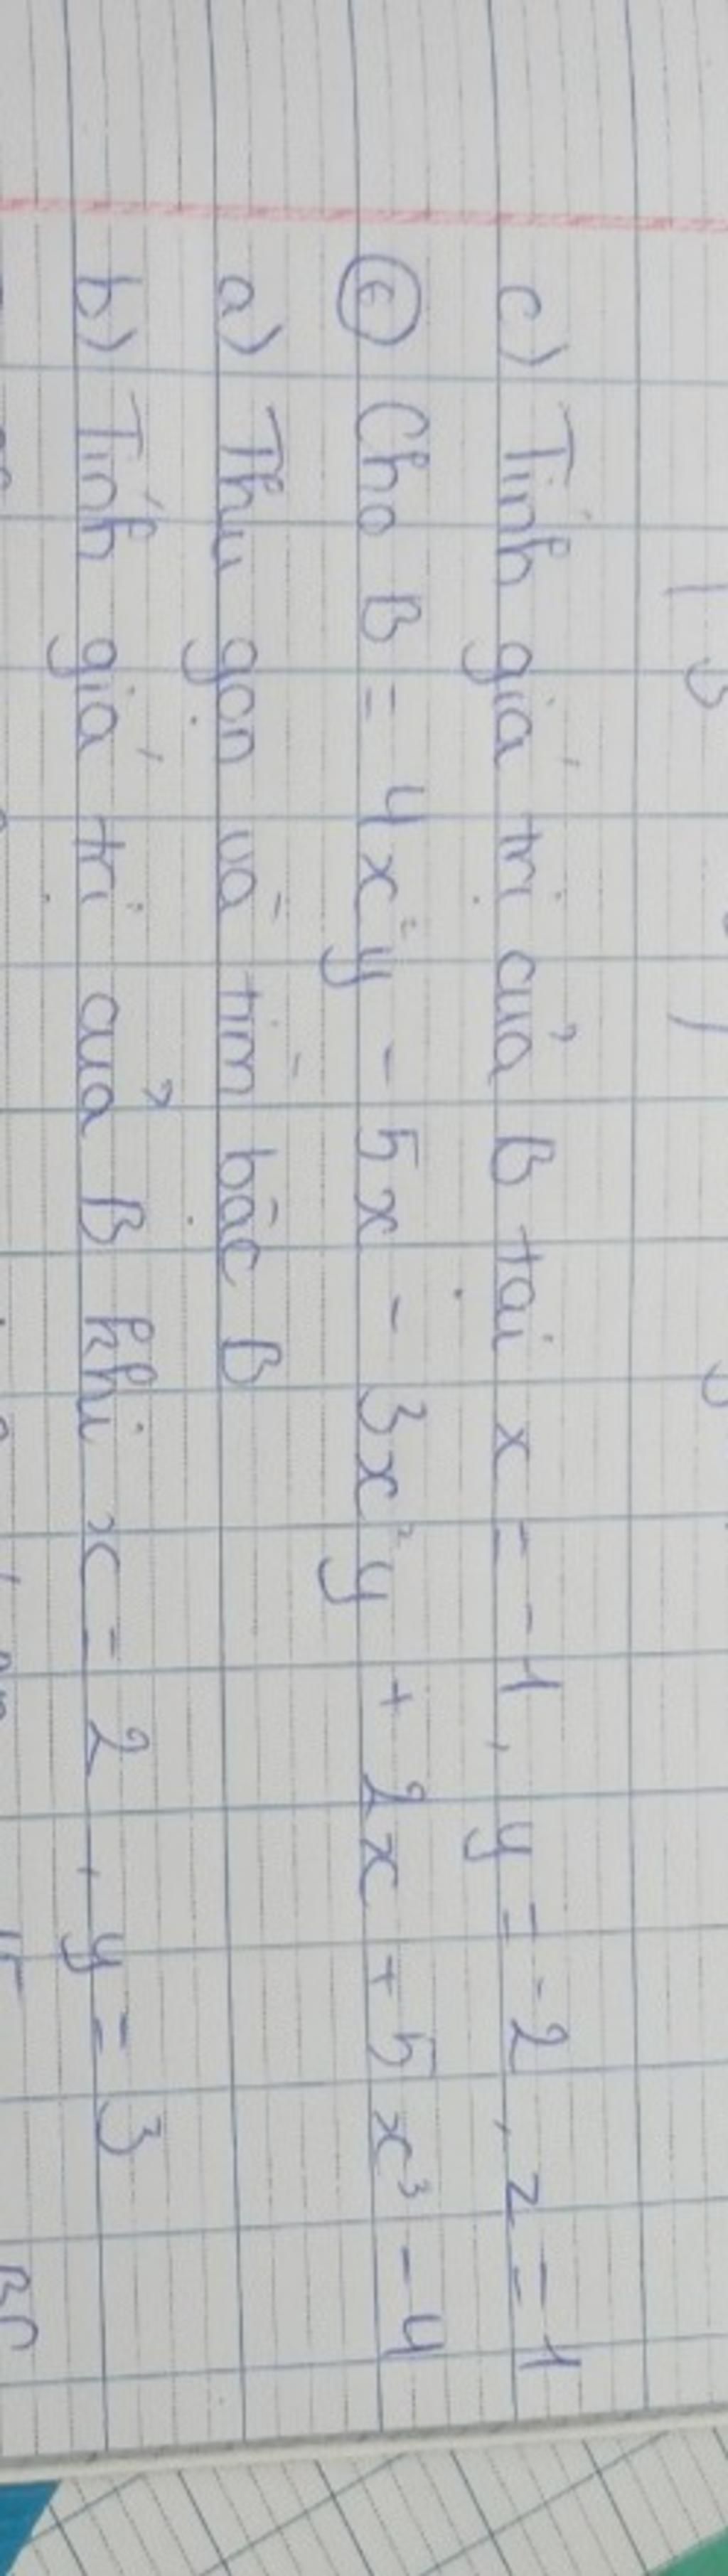 c) Tính giá trị của B tại x = -1, y = -2, z = 1
Cho B = 4x²y - 5x - 3x²y + 2x + 5x³ - 4
a) Thu gọn và tìm bậc B
b) Tính giá trị của B khi x = 2, y = 3